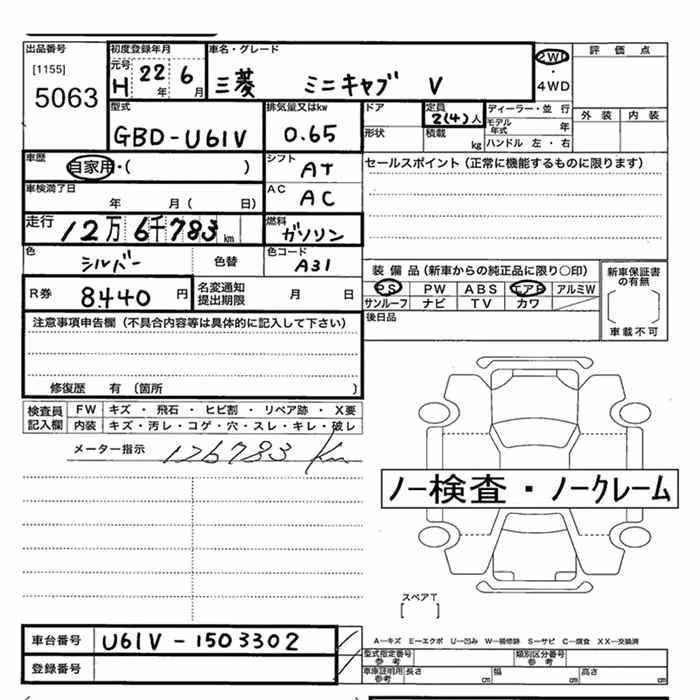 出品番号 初度登録年月 車名・グレード 評価点
[1155] 元号 2WD
5063 H 22年 6月 三菱 ミニキャブ V ・4WD
型式 排気量又はkw ドア 定員 ディーラー・並行 外装 内装
2(4)人 モデル年式 年
GBD-U61V 0.65 形状 積載 kg ハンドル 左・右
車歴 シフト セールスポイント(正常に機能するものに限ります)
自家用・( ) AT
車検満了日 AC
年 月( 日) AC
走行 12万6千783km 燃料 ガソリン
色 シルバー 色替 色コード A31
装備品(新車からの純正品に限り○印) 新車保証書の有無
R券 8440円 名変通知提出期限 月 日 PS PW ABS エアB アルミW
サンルーフ ナビ TV カワ
[ ]
車載不可
注意事項申告欄(不具合内容等は具体的に記入して下さい) 後日品
修復歴 有(箇所 )
検査員記入欄 FW キズ・飛石・ヒビ割・リペア跡・X要
内装 キズ・汚レ・コゲ・穴・スレ・キレ・破レ
メーター指示 126783 Km
ノー検査・ノークレーム
スペアT
[ ]
車台番号 U61V-1503302
A―キズ E―エクボ U―凹み W―補修跡 S―サビ C―腐食 XX―交換済
登録番号 型式指定番号 参考 類別区分番号 参考
車庫証明用 参考 長さ cm 幅 cm 高さ cm